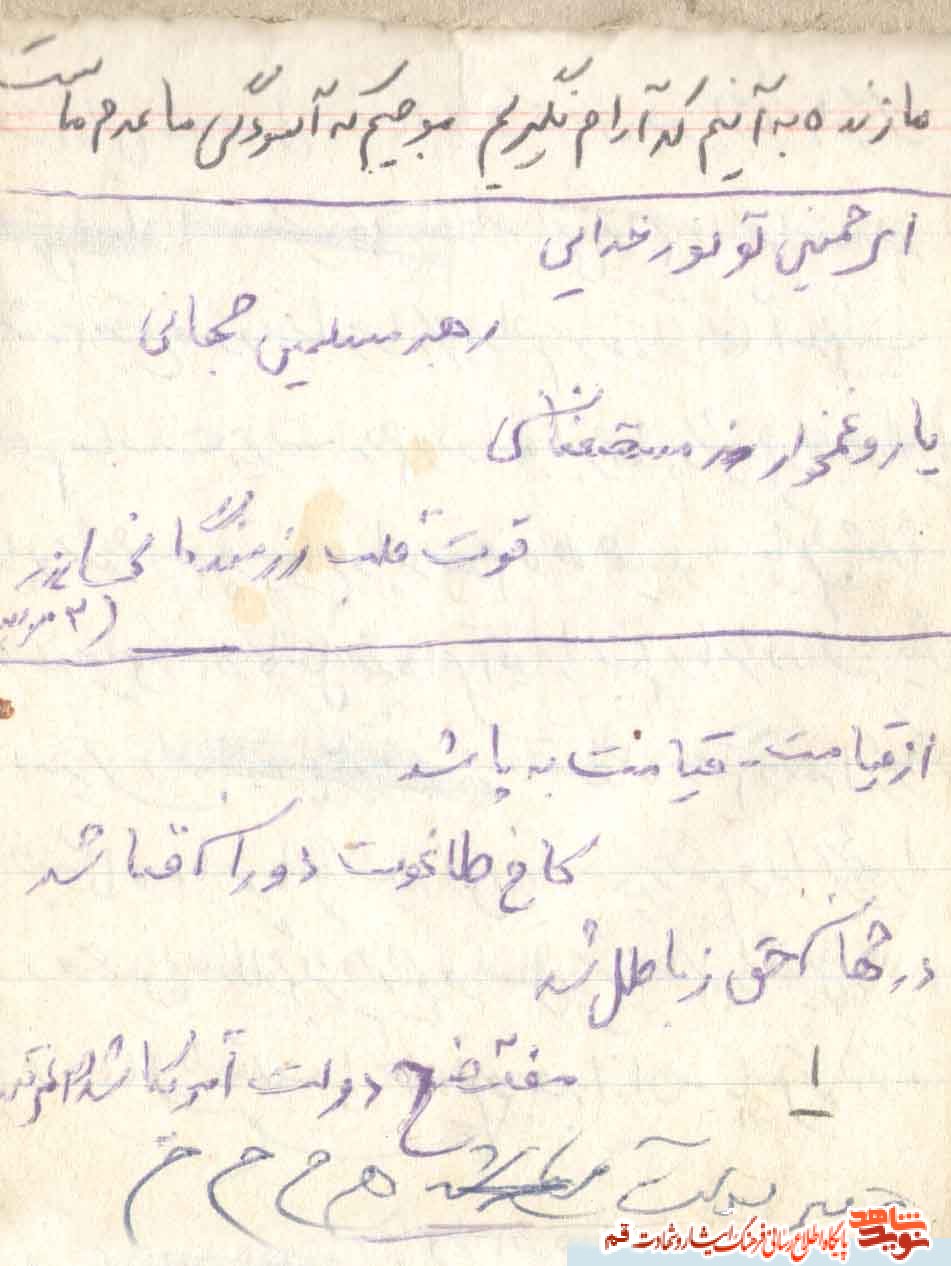 ما زنده به آنیم که آرام نگیریم موجیم که آسودگی ما عدم ماست
ای خمینی تو نور خدایی
رهبر مسلمین جهانی
یار و غمخوار مستضعفانی
قوت قلب رزمندگانی
(۳ مرتبه
از قیامت قیامت به پا شد
کاخ طاغوت دوران فنا شد
در جهان حق ز باطل شد
مفتضح دولت آمریکا شد
۱
م م م
نوید شاهد
پایگاه اطلاع رسانی فرهنگ ایثار و شهادت قم